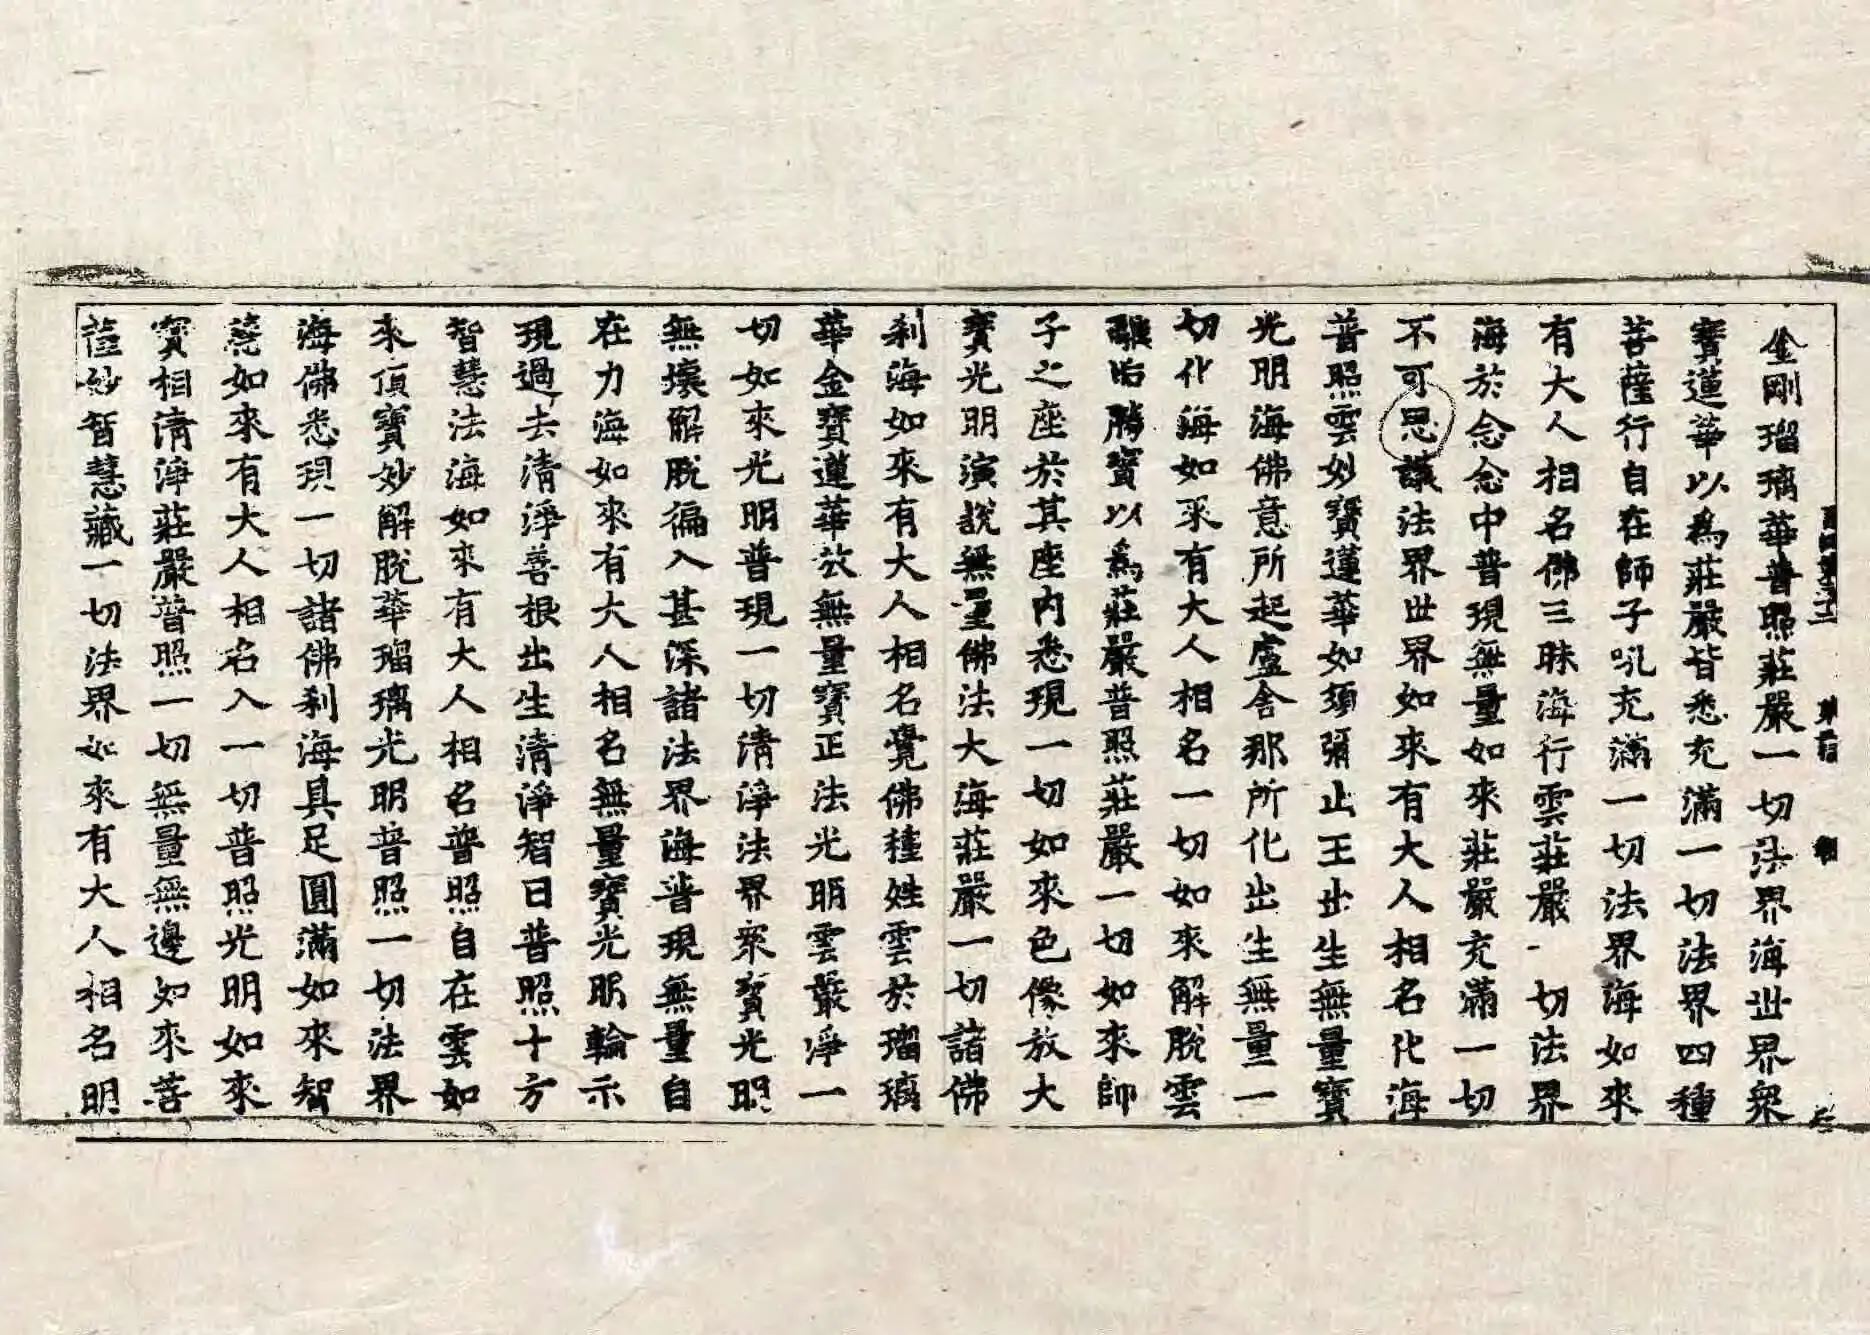 金剛瑠璃華普照莊嚴一切法界海世界衆
寶蓮華以為莊嚴皆悉充滿一切法界四種
菩薩行自在師子吼充滿一切法界海如來
有大人相名佛三昧海行雲莊嚴一切法界
海於念念中普現無量如來莊嚴充滿一切
不可思議法界世界如來有大人相名化海
普照雲妙寶蓮華如須彌山王出生無量寶
光明海佛意所起盧舍那所化出生無量一
切化海如來有大人相名一切如來解脫雲
離垢勝寶以為莊嚴普照莊嚴一切如來師
子之座於其座內悉現一切如來色像放大
寶光明演說無量佛法大海莊嚴一切諸佛
刹海如來有大人相名覺佛種姓雲於瑠璃
華金寶蓮華放無量寶正法光明雲嚴淨一
切如來光明普現一切清淨法界衆寶光明
無壞解脫徧入甚深諸法界海普現無量自
在力海如來有大人相名無量寶光明輪示
現過去清淨善根出生清淨智日普照十方
智慧法海如來有大人相名普照自在雲如
來頂寶妙解脫華瑠璃光明普照一切法界
海佛悉現一切諸佛刹海具足圓滿如來智
慧如來有大人相名入一切普照光明如來
寶相清淨莊嚴普照一切無量無邊如來菩
薩妙智慧藏一切法界如來有大人相名明